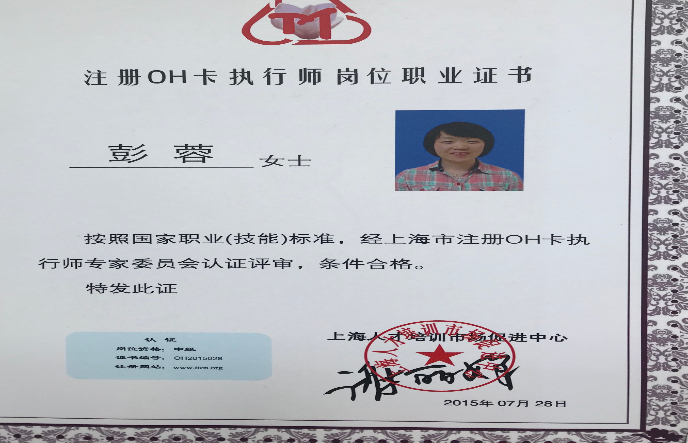 注册OH卡执行师岗位职业证书
彭蓉 女士
按照国家职业(技能)标准，经上海市注册OH卡执
行师专家委员会认证评审，条件合格。
特发此证
认证
岗位资格：中级
证书编号：OH2015028
注册网站：
上海人才培训市场促进中心
2015年07月28日